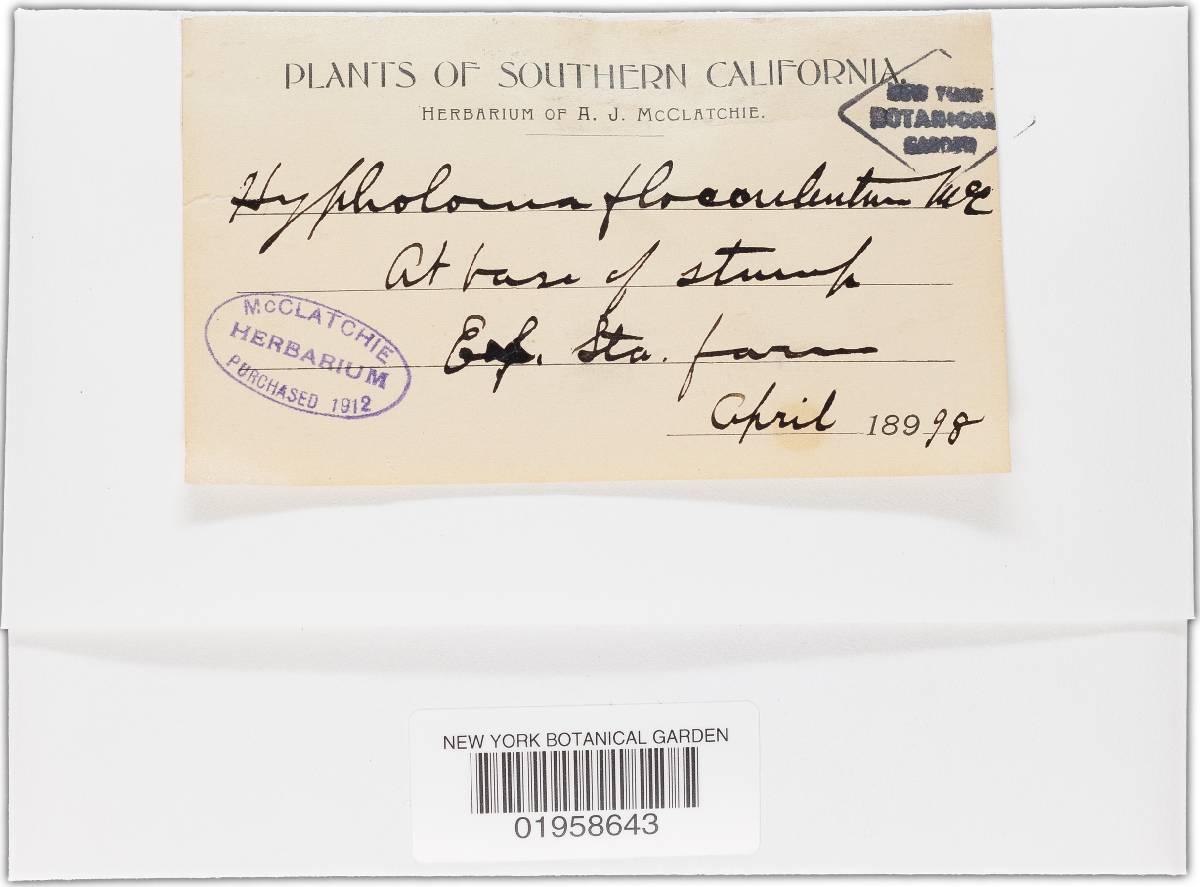 PLANTS OF SOUTHERN CALIFORNIA.
HERBARIUM OF A. J. MCCLATCHIE.
NEW YORK
BOTANICAL
GARDEN
Hypholoma flocculentum McC
At base of stump
Exp. Sta. farm
April 18998
McCLATCHIE
HERBARIUM
PURCHASED 1912
NEW YORK BOTANICAL GARDEN
01958643